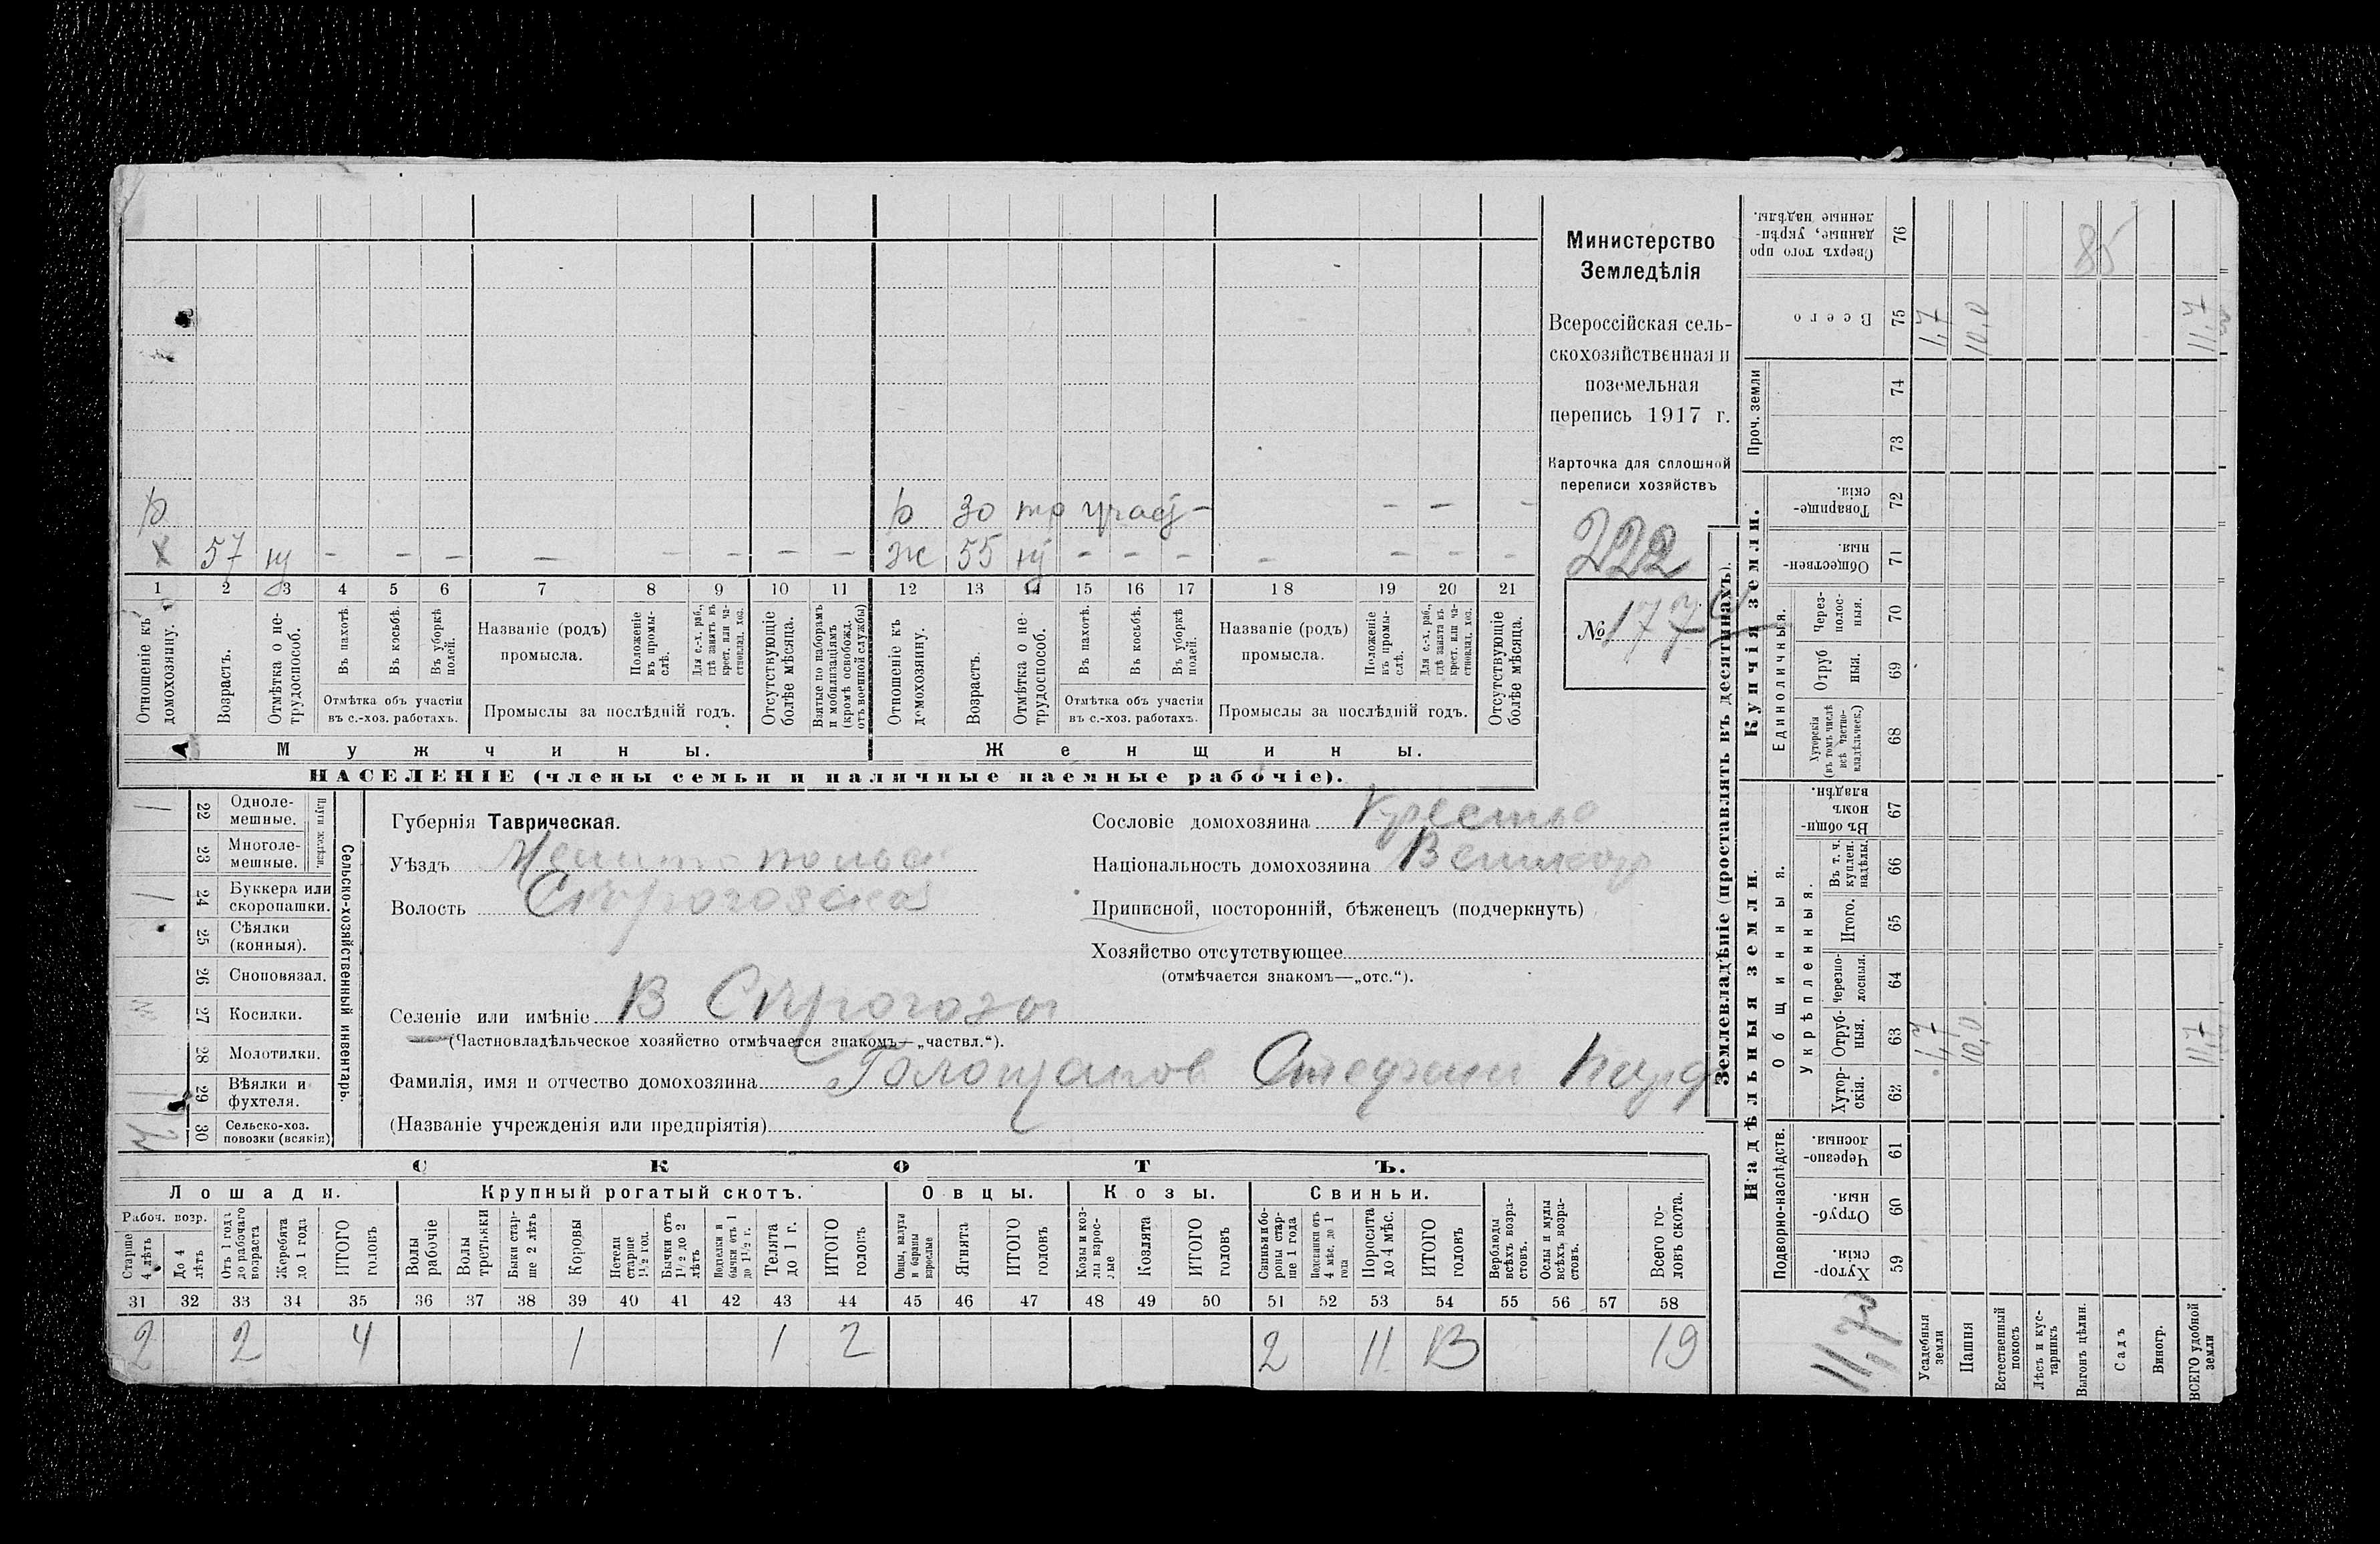 Министерство
Земледѣлія
Всероссійская сель-
скохозяйственная и
поземельная
перепись 1917 г.
Карточка для сплошной
переписи хозяйствъ
222
№ 177
р р 30
х 57 — — — — — — — — ж 55 — — — — — — —
1 2 3 4 5 6 7 8 9 10 11 12 13 14 15 16 17 18 19 20 21
Отношеніе къ домохозяину.
Возрастъ.
Отмѣтка о не-трудоспособ.
Въ пахотѣ.
Въ косьбѣ.
Въ уборкѣ полей.
Отмѣтка объ участіи
въ с.-хоз. работахъ.
Названіе (родъ)
промысла.
Положеніе въ промы-слѣ.
Для с.-х. раб., гдѣ занятъ въ крест. или ча-стновлад. хоз.
Промыслы за послѣдній годъ.
Отсутствующіе болѣе мѣсяца.
Взятые по наборамъ и мобилизаціямъ (кромѣ освобожд. отъ военной службы)
Отношеніе къ домохозяину.
Возрастъ.
Отмѣтка о не-трудоспособ.
Въ пахотѣ.
Въ косьбѣ.
Въ уборкѣ полей.
Отмѣтка объ участіи
въ с.-хоз. работахъ.
Названіе (родъ)
промысла.
Положеніе въ промы-слѣ.
Для с.-х. раб., гдѣ занята въ крест. или ча-стновлад. хоз.
Промыслы за послѣдній годъ.
Отсутствующіе болѣе мѣсяца.
Мужчины. Женщины.
НАСЕЛЕНІЕ (члены семьи и наличные наемные рабочіе).
Сельско-хозяйственный инвентарь.
Плуги желѣзн.
22 Одноле-мешные. 1
23 Многоле-мешные.
24 Буккера или скоропашки. 1
25 Сѣялки (конныя).
26 Сноповязал.
27 Косилки.
28 Молотилки.
29 Вѣялки и фухтеля. 1
30 Сельско-хоз. повозки (всякія)
Губернія Таврическая.
Уѣздъ Мелитопольск
Волость Сѣрогозская
Селеніе или имѣніе В Сѣрогозы
(Частновладѣльческое хозяйство отмѣчается знакомъ—„частвл.“).
Фамилія, имя и отчество домохозяина
(Названіе учрежденія или предпріятія)
Сословіе домохозяина Крестья
Національность домохозяина Великор
Приписной, посторонній, бѣженецъ (подчеркнуть)
Хозяйство отсутствующее
(отмѣчается знакомъ—„отс.“).
СКОТЪ.
Лошади. Крупный рогатый скотъ. Овцы. Козы. Свиньи.
Рабоч. возр.
Старше 4 лѣтъ
До 4 лѣтъ
Отъ 1 года до рабочаго возраста
Жеребята до 1 года
ИТОГО головъ
Волы рабочіе
Волы третьяки
Быки стар-ше 2 лѣтъ
Коровы
Нетели старше 1½ год.
Бычки отъ 1½ до 2 лѣтъ
Подтелки и бычки отъ 1 до 1½ г.
Телята до 1 г.
ИТОГО головъ
Овцы, валухи и бараны взрослые
Ягнята
ИТОГО головъ
Козы и коз-лы взрос-лые
Козлята
ИТОГО головъ
Свиньи и бо-роны стар-ше 1 года
Подсвинки отъ 4 мѣс. до 1 года
Поросята до 4 мѣс.
ИТОГО головъ
Верблюды всѣхъ возра-стовъ.
Ослы и мулы всѣхъ возра-стовъ.
Всего го-ловъ скота.
31 32 33 34 35 36 37 38 39 40 41 42 43 44 45 46 47 48 49 50 51 52 53 54 55 56 57 58
2 2 4 1 1 2 2 11 13 19
Землевладѣніе (проставлять въ десятинахъ).
Надѣльныя земли. Купчія земли. Проч. земли
Подворно-наслѣдств.
Общинныя.
Укрѣпленныя.
Единоличныя.
59 Хутор-скія.
60 Отруб-ныя.
61 Черезпо-лосныя.
62 Хутор-скія.
63 Отруб-ныя.
64 Черезпо-лосныя.
65 Итого.
66 Въ т. ч. куплен. надѣлы.
67 Въ общи-номъ владѣн.
68 Хуторскія (въ томъ числѣ всѣ частно-владѣльческ.)
69 Отруб ныя.
70 Через-полос-ныя.
71 Обществен-ныя.
72 Товарище-скія.
73
74
75 Всего
76 Сверхъ того про данные, укрѣп-ленные надѣлы.
Усадебныя земли 1,7 1,7
Пашня 10,0 10,0
Естественный покосъ
Лѣсъ и кус-тарникъ
Выгонъ цѣлин. 85
Садъ
Виногр.
ВСЕГО удобной земли 11,7 11,7
11,7